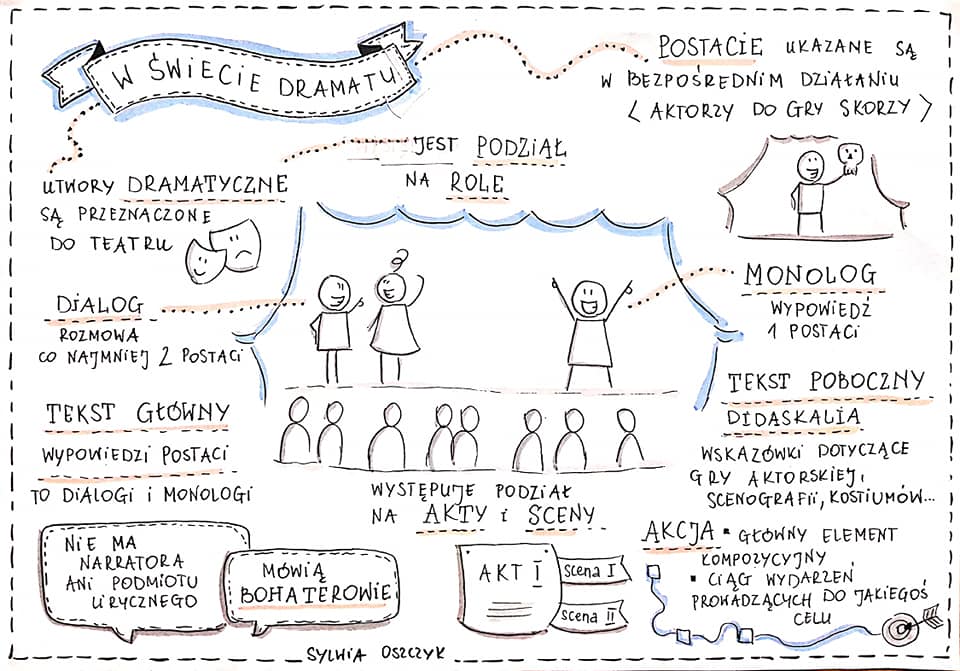 W ŚWIECIE DRAMATU
POSTACIE UKAZANE SĄ
W BEZPOŚREDNIM DZIAŁANIU
(AKTORZY DO GRY SKORZY)
JEST PODZIAŁ
NA ROLE
UTWORY DRAMATYCZNE
SĄ PRZEZNACZONE
DO TEATRU
DIALOG
ROZMOWA
CO NAJMNIEJ 2 POSTACI
MONOLOG
WYPOWIEDŹ
1 POSTACI
TEKST GŁÓWNY
WYPOWIEDZI POSTACI
TO DIALOGI I MONOLOGI
TEKST POBOCZNY
DIDASKALIA
WSKAZÓWKI DOTYCZĄCE
GRY AKTORSKIEJ,
SCENOGRAFII, KOSTIUMÓW...
WYSTĘPUJE PODZIAŁ
NA AKTY i SCENY
NIE MA
NARRATORA
ANI PODMIOTU
LIRYCZNEGO
MÓWIĄ
BOHATEROWIE
AKT I
scena I
scena II
AKCJA ▪ GŁÓWNY ELEMENT
KOMPOZYCYJNY
▪ CIĄG WYDARZEŃ
PROWADZĄCYCH DO JAKIEGOŚ
CELU
SYLWIA OSZCZYK